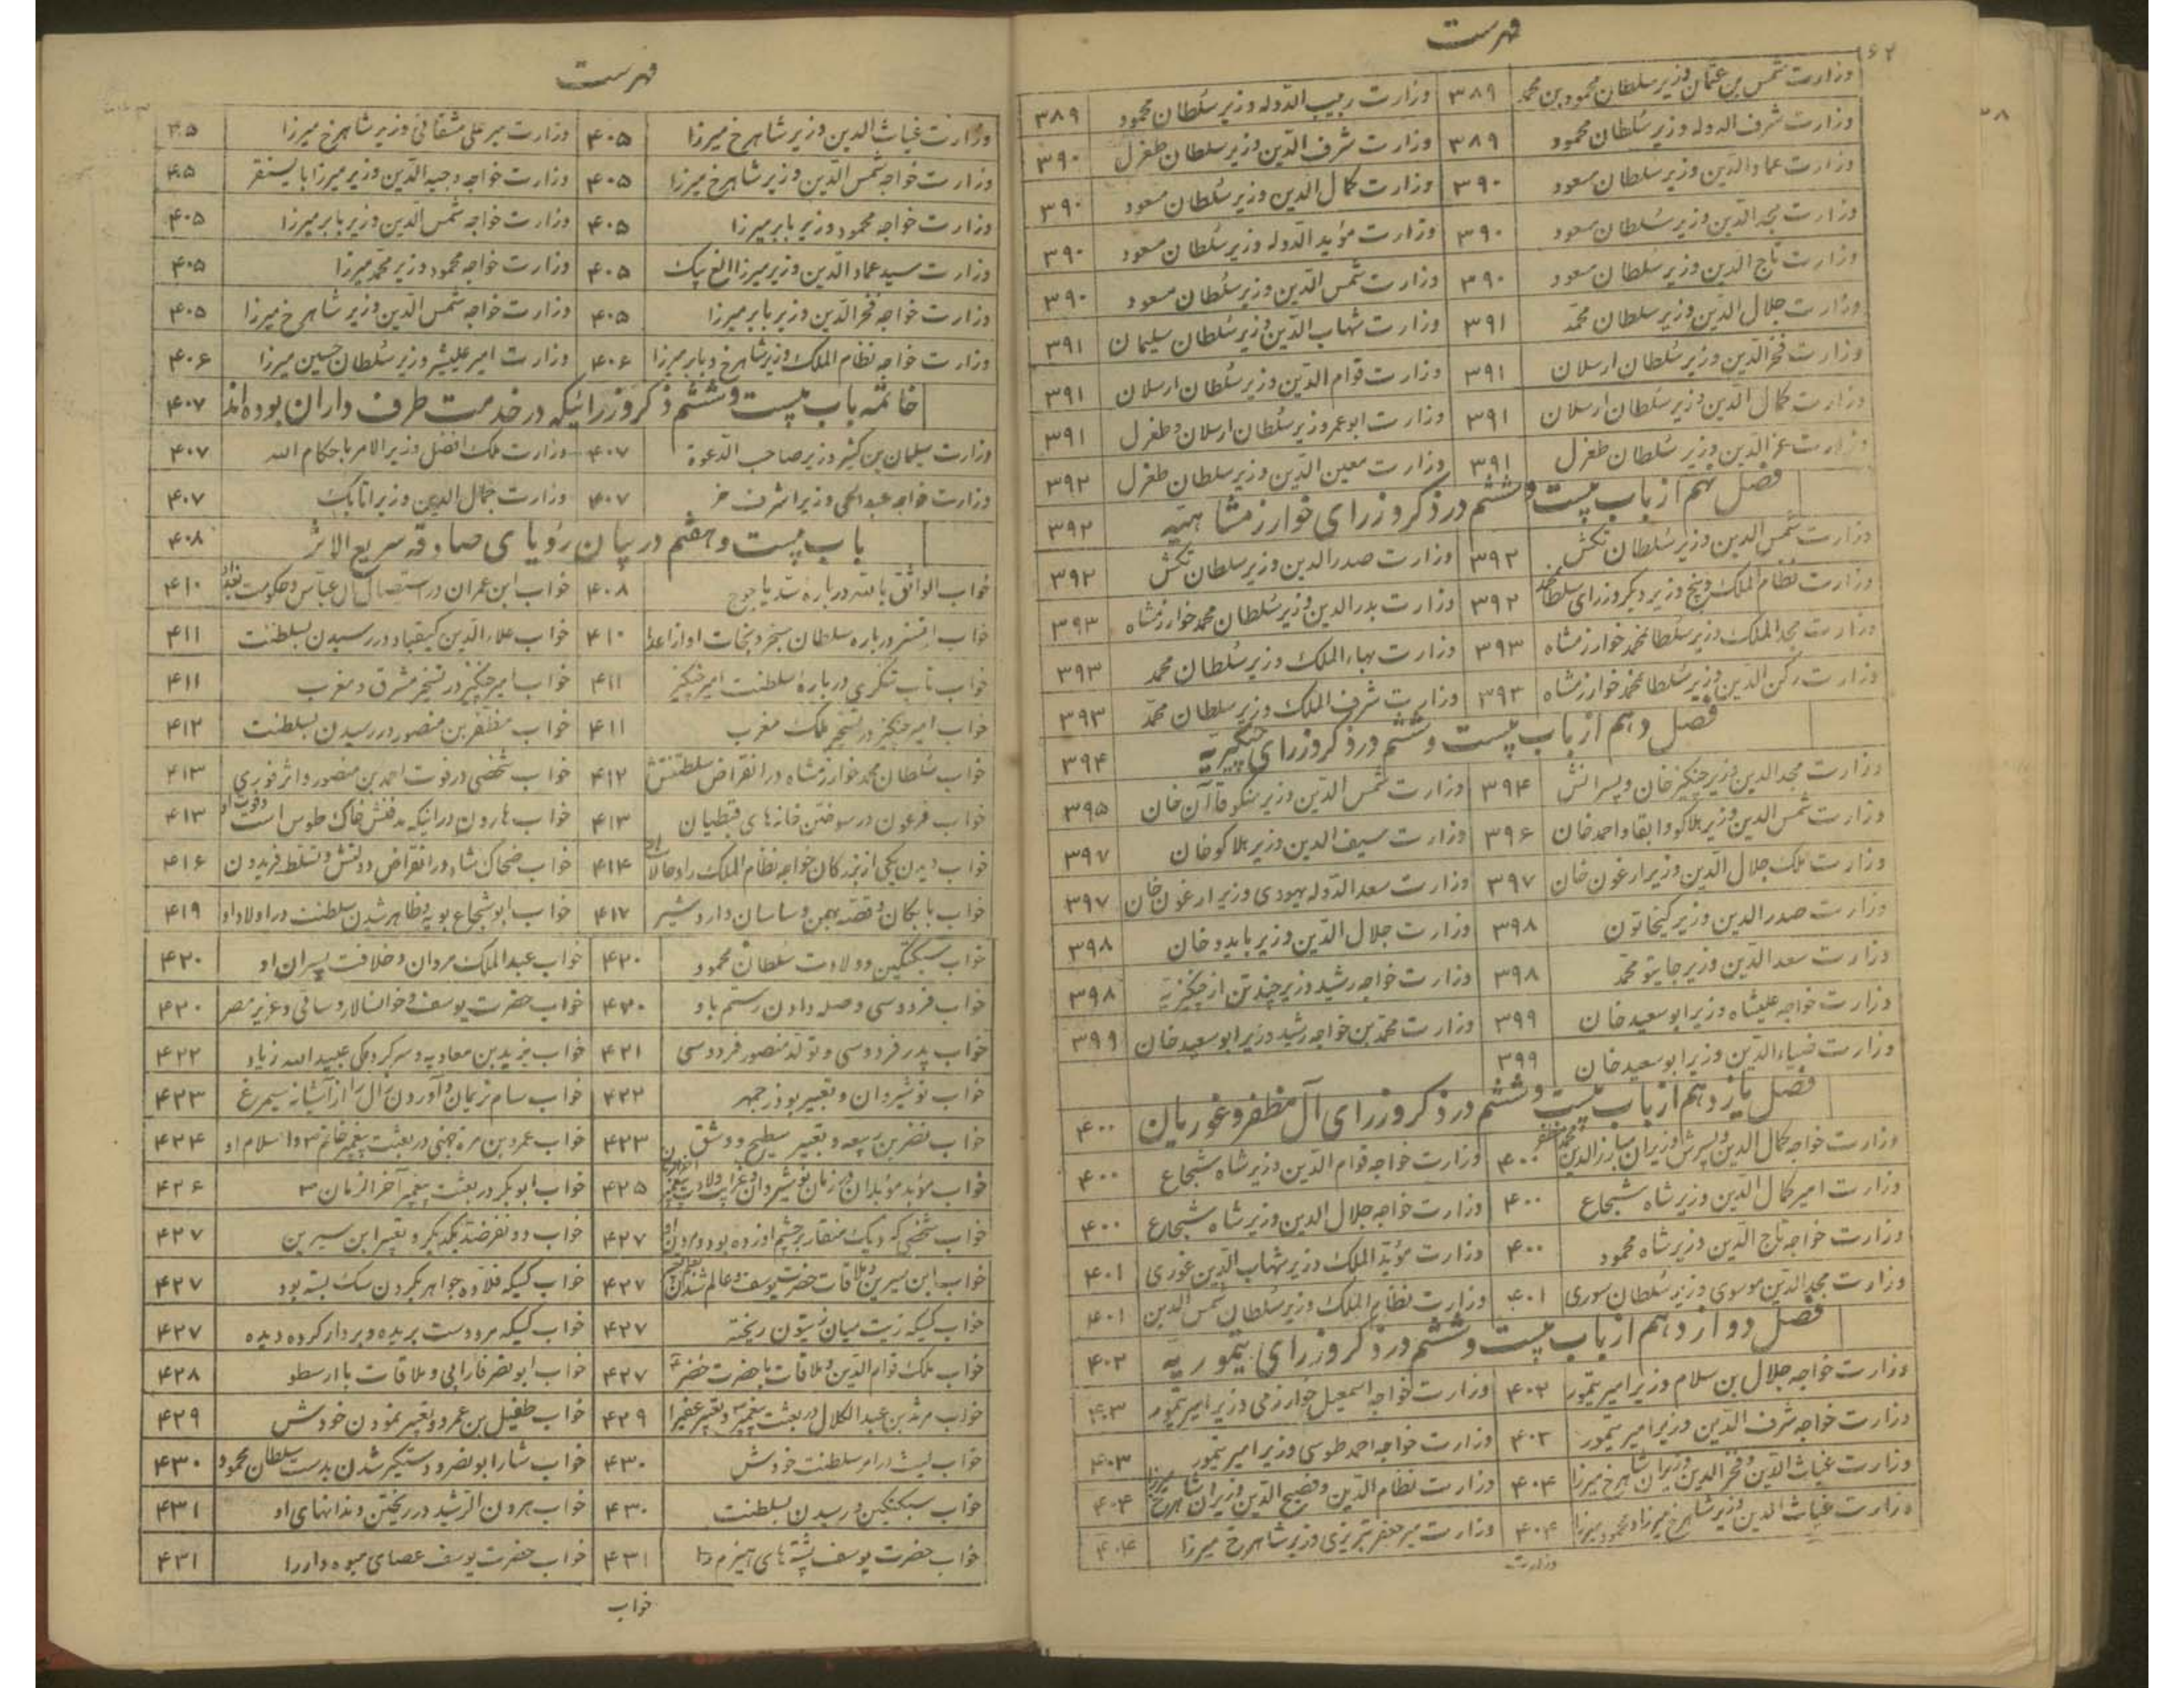 فهرست
وزارت شمس بن عثمان وزیر سلطان محمود بن محمد ۳۸۹ وزارت ربیب الدوله وزیر سلطان محمود ۳۸۹
وزارت شرف الدوله وزیر سلطان محمود ۳۸۹ وزارت شرف الدین وزیر سلطان طغرل ۳۹۰
وزارت عماد الدین وزیر سلطان مسعود ۳۹۰ وزارت کمال الدین وزیر سلطان مسعود ۳۹۰
وزارت مجد الدین وزیر سلطان مسعود ۳۹۰ وزارت مؤید الدوله وزیر سلطان مسعود ۳۹۰
وزارت تاج الدین وزیر سلطان مسعود ۳۹۰ وزارت شمس الدین وزیر سلطان مسعود ۳۹۰
وزارت جلال الدین وزیر سلطان محمد ۳۹۱ وزارت شهاب الدین وزیر سلطان سلیمان ۳۹۱
وزارت فخر الدین وزیر سلطان ارسلان ۳۹۱ وزارت قوام الدین وزیر سلطان ارسلان ۳۹۱
وزارت کمال الدین وزیر سلطان ارسلان ۳۹۱ وزارت ابوعمر وزیر سلطان ارسلان و طغرل ۳۹۱
وزارت عز الدین وزیر سلطان طغرل ۳۹۱ وزارت معین الدین وزیر سلطان طغرل ۳۹۲
فصل نهم از باب بیست و ششم در ذکر وزرای خوارزمشاهیه ۳۹۲
وزارت شمس الدین وزیر سلطان تکش ۳۹۲ وزارت صدر الدین وزیر سلطان تکش ۳۹۲
وزارت نظام الملک و پنج وزیر دیگر وزرای سلطان محمد ۳۹۲ وزارت بدر الدین وزیر سلطان محمد خوارزمشاه ۳۹۳
وزارت مجد الملک وزیر سلطان محمد خوارزمشاه ۳۹۳ وزارت بهاء الملک وزیر سلطان محمد ۳۹۳
وزارت رکن الدین وزیر سلطان محمد خوارزمشاه ۳۹۳ وزارت شرف الملک وزیر سلطان محمد ۳۹۳
فصل دهم از باب بیست و ششم در ذکر وزرای چنگیزیه ۳۹۴
وزارت مجد الدین وزیر چنگیز خان و پسرانش ۳۹۴ وزارت شمس الدین وزیر منکو قاآن خان ۳۹۵
وزارت شمس الدین وزیر هلاکو و ابقا و احمد خان ۳۹۶ وزارت سیف الدین وزیر هلاکو خان ۳۹۷
وزارت ملک جلال الدین وزیر ارغون خان ۳۹۷ وزارت سعد الدوله یهودی وزیر ارغون خان ۳۹۷
وزارت صدر الدین وزیر کیخاتون ۳۹۸ وزارت جلال الدین وزیر بایدو خان ۳۹۸
وزارت سعد الدین وزیر جایتو محمد ۳۹۸ وزارت خواجه رشید وزیر چند تن از چنگیزیه ۳۹۸
وزارت خواجه علیشاه وزیر ابو سعید خان ۳۹۹ وزارت محمد بن خواجه رشید وزیر ابو سعید خان ۳۹۹
وزارت ضیاء الدین وزیر ابو سعید خان ۳۹۹
فصل یازدهم از باب بیست و ششم در ذکر وزرای آل مظفر و غوریان ۴۰۰
وزارت خواجه کمال الدین و پسرش وزیران مبارز الدین محمد مظفر ۴۰۰ وزارت خواجه قوام الدین وزیر شاه شجاع ۴۰۰
وزارت امیر کمال الدین وزیر شاه شجاع ۴۰۰ وزارت خواجه جلال الدین وزیر شاه شجاع ۴۰۰
وزارت خواجه تاج الدین وزیر شاه محمود ۴۰۰ وزارت مؤید الملک وزیر شهاب الدین غوری ۴۰۱
وزارت مجد الدین موسوی وزیر سلطان سوری ۴۰۱ وزارت نظام الملک وزیر سلطان شمس الدین ۴۰۱
فصل دوازدهم از باب بیست و ششم در ذکر وزرای تیموریه ۴۰۲
وزارت خواجه جلال بن سلام وزیر امیر تیمور ۴۰۲ وزارت خواجه اسمعیل خوارزمی وزیر امیر تیمور ۴۰۳
وزارت خواجه شرف الدین وزیر امیر تیمور ۴۰۳ وزارت خواجه احمد طوسی وزیر امیر تیمور ۴۰۳
وزارت غیاث الدین و فخر الدین وزیران شاهرخ میرزا ۴۰۴ وزارت نظام الدین و فصیح الدین وزیران شاهرخ میرزا ۴۰۴
وزارت غیاث الدین وزیر شاهرخ میرزا و محمود میرزا ۴۰۴ وزارت میر جعفر تبریزی وزیر شاهرخ میرزا ۴۰۴
وزارت
فهرست
وزارت غیاث الدین وزیر شاهرخ میرزا ۴۰۵ وزارت میر علی مشقانی وزیر شاهرخ میرزا ۴۰۵
وزارت خواجه شمس الدین وزیر شاهرخ میرزا ۴۰۵ وزارت خواجه وجیه الدین وزیر میرزا بایسنقر ۴۰۵
وزارت خواجه محمود وزیر بابر میرزا ۴۰۵ وزارت خواجه شمس الدین وزیر بابر میرزا ۴۰۵
وزارت سید عماد الدین وزیر میرزا الغ بیک ۴۰۵ وزارت خواجه محمود وزیر محمد میرزا ۴۰۵
وزارت خواجه فخر الدین وزیر بابر میرزا ۴۰۵ وزارت خواجه شمس الدین وزیر شاهرخ میرزا ۴۰۵
وزارت خواجه نظام الملک وزیر شاهرخ و بابر میرزا ۴۰۶ وزارت امیر علیشیر وزیر سلطان حسین میرزا ۴۰۶
خاتمه باب بیست و ششم ذکر وزرائیکه در خدمت طرف داران بوده اند ۴۰۷
وزارت سلیمان بن کثیر وزیر صاحب الدعوة ۴۰۷ وزارت ملک افضل وزیر الامر باحکام الله ۴۰۷
وزارت خواجه عبد الحی وزیر اشرف خر ۴۰۷ وزارت جمال الدین وزیر اتابک ۴۰۷
باب بیست و هفتم در بیان رؤیای صادقه سریع الاثر ۴۰۸
خواب الواثق بالله درباره سد یاجوج ۴۰۸ خواب ابن عمران در استیصال آل عباس و حکومت بغداد ۴۱۰
خواب اتسز درباره سلطان سنجر و نجات او از اعدا ۴۱۰ خواب علاء الدین کیقباد در رسیدن بسلطنت ۴۱۱
خواب تاب تنکری درباره سلطنت امیر چنگیز ۴۱۱ خواب امیر چنگیز در تسخیر مشرق و مغرب ۴۱۱
خواب امیر چنگیز در تسخیر ملک مغرب ۴۱۱ خواب مظفر بن منصور در رسیدن بسلطنت ۴۱۲
خواب سلطان محمد خوارزمشاه در انقراض سلطنتش ۴۱۲ خواب شخصی در فوت احمد بن منصور و اثر فوری ۴۱۳
خواب فرعون در سوختن خانه های قبطیان ۴۱۳ خواب هارون در اینکه مدفنش خاک طوس است و فوت او ۴۱۳
خواب دیدن یکی از بزرکان خواجه نظام الملک را و حالات او ۴۱۴ خواب ضحاک شاه در انقراض دولتش و تسلط فریدون ۴۱۶
خواب بابکان و قصه بهمن و ساسان و اردشیر ۴۱۷ خواب ابو شجاع بویه و ظاهر شدن سلطنت در اولاد او ۴۱۹
خواب سبکتکین و ولادت سلطان محمود ۴۲۰ خواب عبد الملک مروان و خلافت پسران او ۴۲۰
خواب فردوسی و صله دادن رستم باو ۴۲۰ خواب حضرت یوسف و خوانسالار و ساقی و عزیز مصر ۴۲۰
خواب پدر فردوسی و تولد منصور فردوسی ۴۲۱ خواب یزید بن معاویه و سرکردگی عبید الله زیاد ۴۲۲
خواب نوشیروان و تعبیر بوذرجمهر ۴۲۲ خواب سام نریمان و آوردن زال را از آشیانه سیمرغ ۴۲۳
خواب نضر بن ربیعه و تعبیر سطیح و شق ۴۲۳ خواب عمرو بن مره جهنی در بعثت پیغمبر خاتم ص و اسلام او ۴۲۴
خواب مؤبد مؤبدان در زمان نوشیروان و غرایب ولادت پیغمبر آخر الزمان ۴۲۵ خواب ابوبکر در بعثت پیغمبر آخر الزمان ص ۴۲۶
خواب شخصی که دیک منقار بر چشم او زده بود و مردن او ۴۲۷ خواب دو نفر ضد یکدیگر و تعبیر ابن سیرین ۴۲۷
خواب ابن سیرین و ملاقات حضرت یوسف و عالم شدن بتعبیر ۴۲۷ خواب کسیکه قلاده جواهر بگردن سک بسته بود ۴۲۷
خواب کسیکه زیت میان زیتون ریخته ۴۲۷ خواب کسیکه مرد دست بریده و بردار کرده دیده ۴۲۷
خواب ملک قوام الدین و ملاقات با حضرت خضر ۴۲۷ خواب ابو نصر فارابی و ملاقات با ارسطو ۴۲۸
خواب مرثد بن عبد الکلال در بعثت پیغمبر ص و تعبیر عفیرا ۴۲۹ خواب طفیل بن عمرو و تعبیر نمودن خودش ۴۲۹
خواب لیث در امر سلطنت خودش ۴۳۰ خواب شار ابو نصر و دستگیر شدن بدست سلطان محمود ۴۳۰
خواب سبکتکین در رسیدن بسلطنت ۴۳۰ خواب هرون الرشید در ریختن دندانهای او ۴۳۱
خواب حضرت یوسف پشته های هیزم را ۴۳۱ خواب حضرت یوسف عصای میوه دار را ۴۳۱
خواب